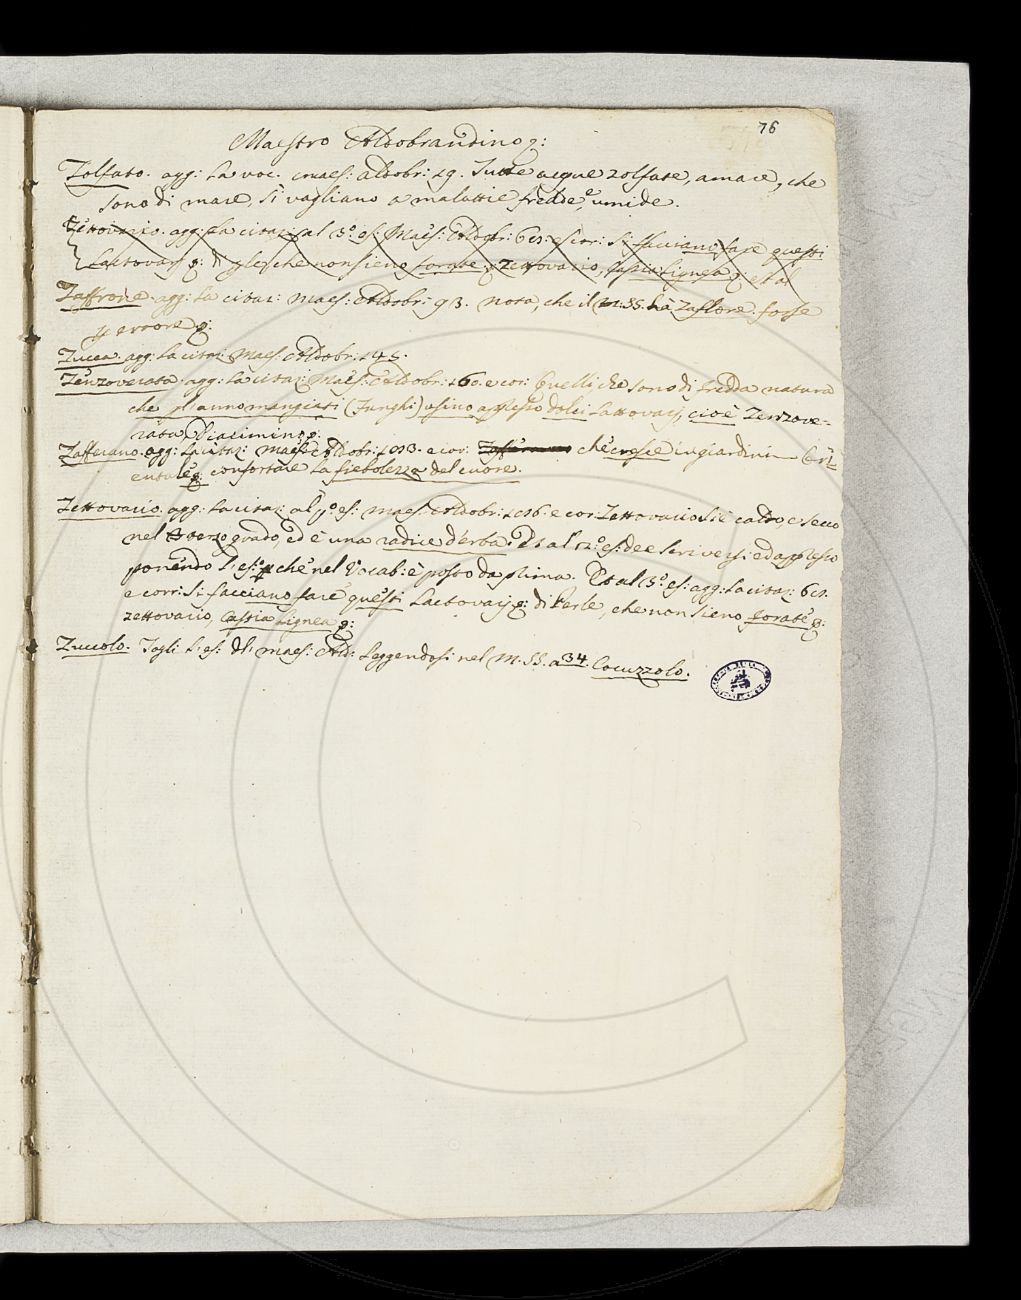 76
Maestro Aldobrandino
Zolfato. agg: la voc. Maes: Aldobr: 19. Tutte acque zolfate, amare, che
sono di mare, si vagliano a malattie fredde, umide.
Zettovario. agg: la citaz: al 3.º es: Maes: Aldobr: si facciano fare questi
Lattovarj che non sieno forate, zettovario, cassia lignea
Zaffrone. agg: la citaz: Maes: Aldobr: 93. nota, che il M:SS. hà Zaflore forse
errore
Zucca. agg: la citaz: Maes: Aldobr: 145.
Zenzoverata. agg: la citaz: Maes: Aldobr: 160. e cor: Quelli che sono di fredda natura
che gli anno mangiati (Funghi) usino appresso dolci Lattovarj, cioè Zenzove-
rata, Diacimino
Zafferano. agg: la citaz: Maes: Aldobr: e cor: che cresce in giardini
confortare la fiebolezza del cuore.
Zettovario. agg: la citaz: al p.º es: Maes: Aldobr: e cor: Zettovario si è caldo, e secco
nel terzo grado, ed è una radice d'erba. al 2.º es: dee scriversi ed appresso
ponendo l'es.º che nel Vocab: è posto da prima. Et al 3.º es: agg: la citaz:
e corr: si facciano fare questi Lattovarj di Perle, che non sieno forate
zettovario, cassia lignea
Zuccolo. Togli l'es: di Maes: Ald: leggendosi nel M.SS. a 34. Cocuzzolo.